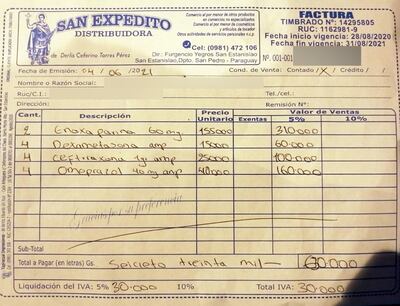 SAN EXPEDITO
DISTRIBUIDORA
de Derlis Ceferino Torres Pérez
Comercio al por menor de otros productos
en comercio no especializados
Comercio al por menor de cosméticos
y artículos de tocador
Otras actividades de servicios personales n.c.p.
Cel: (0981) 472 106
Dir.: Furgencio Yegros San Estanislao
San Estanislao, Dpto. San Pedro - Paraguay
FACTURA
TIMBRADO Nº: 14295805
RUC: 1162981-9
Fecha inicio vigencia: 28/08/2020
Fecha fin vigencia: 31/08/2021
Nº. 001-001
Fecha de Emisión: 04 / 06 / 2021 Cond. de Venta: Contado / X / Crédito /
Nombre o Razón Social:
Ruc/C.I.: Tel./cel.
Dirección: Remisión Nº:
Cant. Descripción Precio Unitario Valor de Ventas
Exentas 5% 10%
2 Enoxaparina 60 mg 155000 310.000
4 Dexametasona amp 15000 60.000
4 Ceftriaxona 1gr amp 25000 100.000
4 Omeprazol 40 mg amp 40000 160.000
Gracias por su preferencia
Sub-Total
Total a Pagar (en letras) Gs. Seicieto treinta mil 630.000
Liquidación del IVA: 5% 30.000 10% Total IVA: 30.000